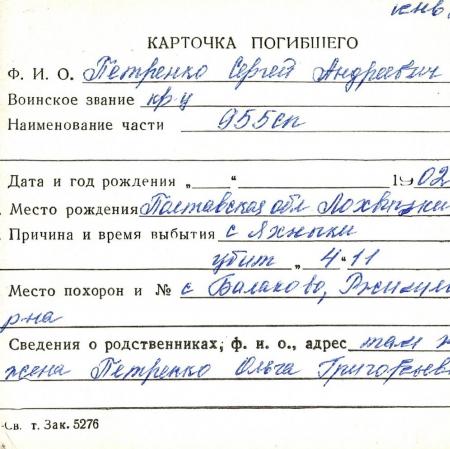 кнв.
КАРТОЧКА ПОГИБШЕГО
Ф. И. О. Петренко Сергей Андреевич
Воинское звание кр-ц
Наименование части 955сп
Дата и год рождения „ “ 1902
Место рождения Полтавская обл Лохвицки
Причина и время выбытия с Яхныки
убит „ 4 “ 11
Место похорон и № с Балахово, Ржищев
р-на
Сведения о родственниках, ф. и. о., адрес там
жена Петренко Ольга Григорьев
-Св. т. Зак. 5276